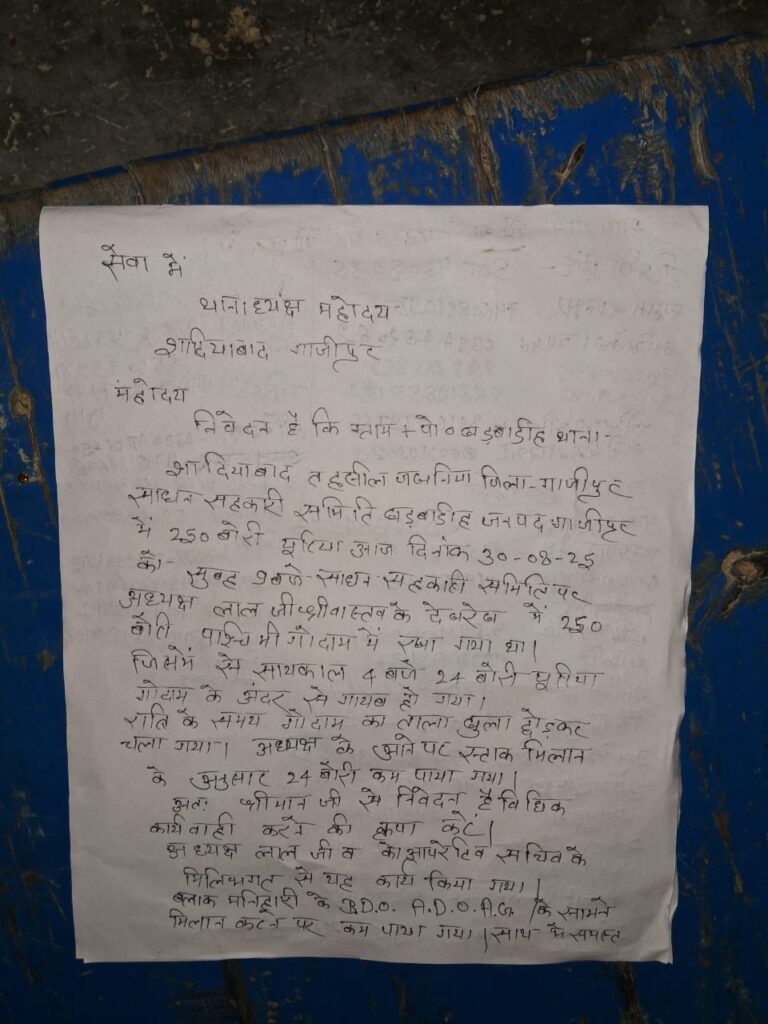 सेवा में
थानाध्यक्ष महोदय
शादियाबाद गाजीपुर
महोदय
निवेदन है कि ग्राम + पो० बड़बाडीह थाना-
शादियाबाद तहसील जखनिया जिला-गाजीपुर
साधन सहकारी समिति बड़बाडीह जनपद गाजीपुर
में 250 बोरी यूरिया आज दिनांक 30-08-25
को- सुबह 9 बजे साधन सहकारी समिति पर
अध्यक्ष लाल जी श्रीवास्तव के देखरेख में 250
बोरी पश्चिमी गोदाम में रखा गया था।
जिसमें से सायकाल 4 बजे 24 बोरी यूरिया
गोदाम के अंदर से गायब हो गया।
रात्रि के समय गोदाम का ताला खुला छोड़कर
चला गया। अध्यक्ष के आने पर स्टाक मिलान
के अनुसार 24 बोरी कम पाया गया।
अतः श्रीमान जी से निवेदन है विधिक
कार्यवाही करने की कृपा करें।
अध्यक्ष लाल जी व कोआपरेटिव सचिव के
मिलिभगत से यह कार्य किया गया।
ब्लाक मनिहारी के B.D.O. A.D.O. AG. के सामने
मिलान करने पर कम पाया गया। साथ में समस्त